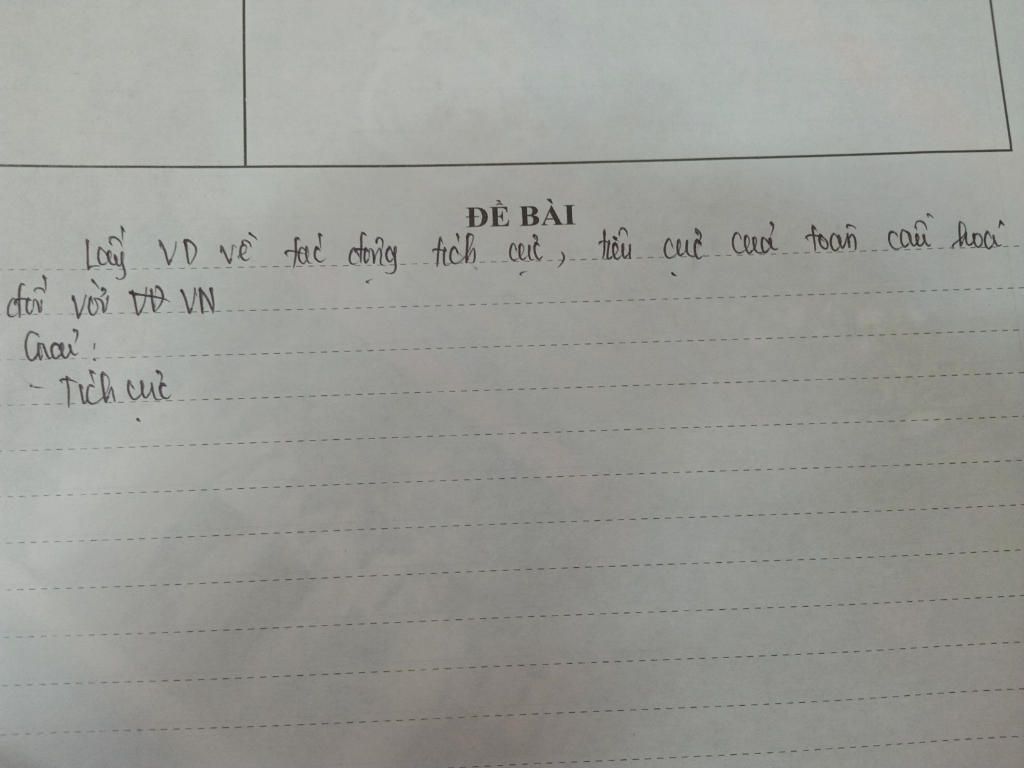 ĐỀ BÀI
Lấy VD về tác động tích cực, tiêu cực của toàn cầu hoá
đối với VĐ VN
- Tích cực